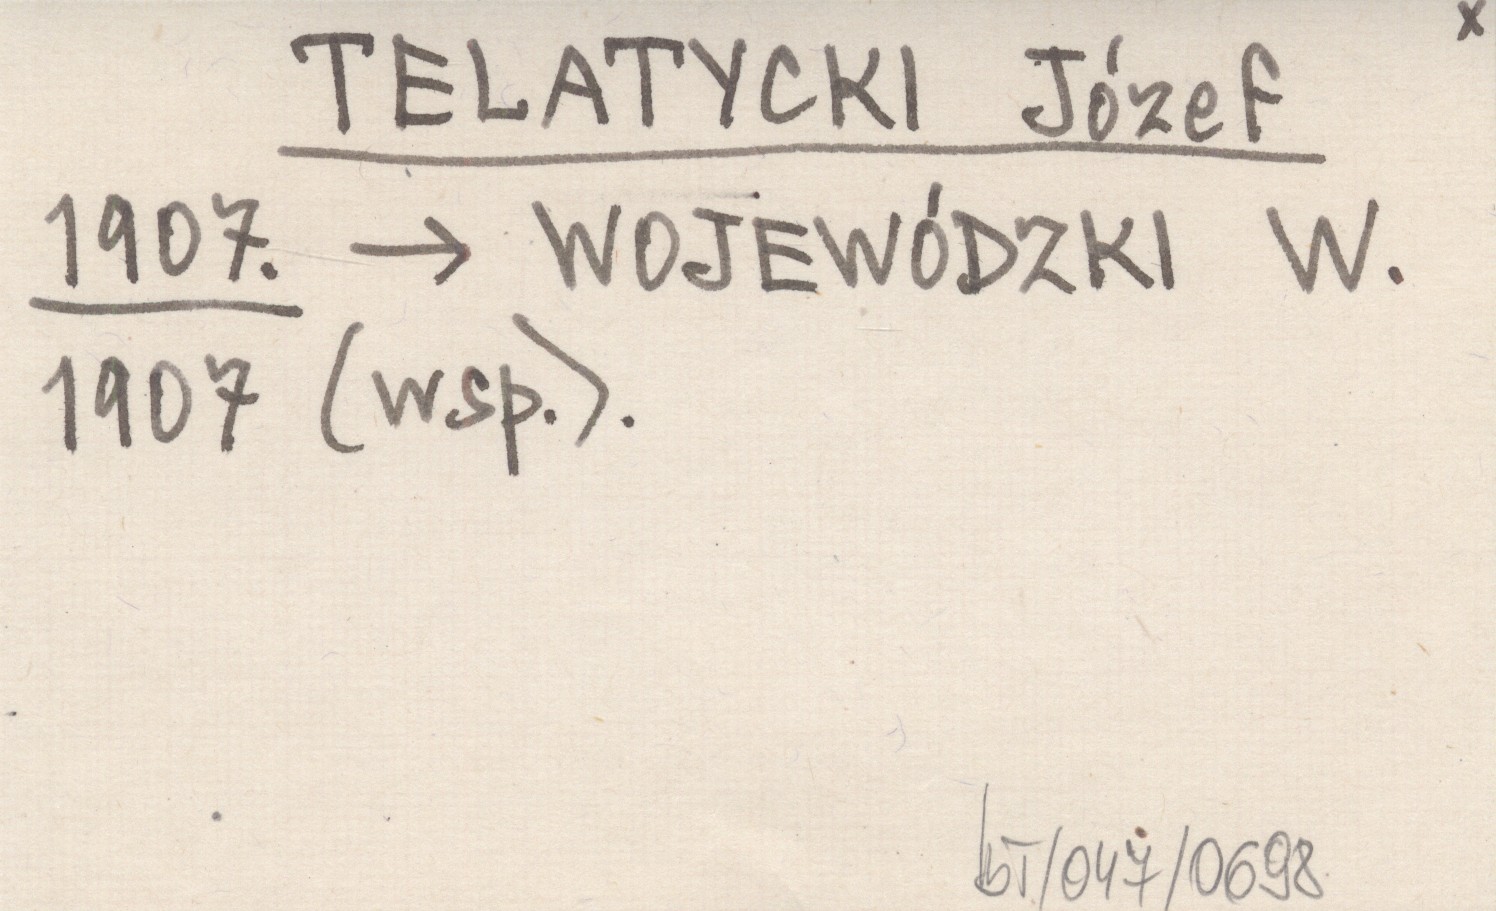 x
TELATYCKI Józef
1907. → WOJEWÓDZKI W.
1907 (wsp.).
bT/047/0698